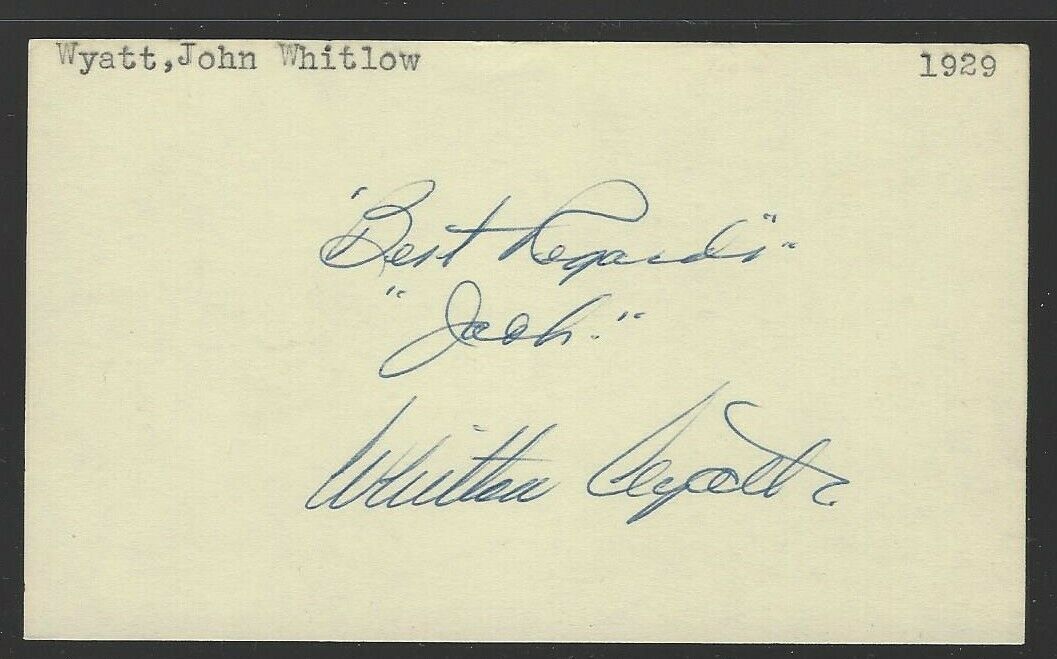 Wyatt,John Whitlow 1929
"Best Regards"
"Jack."
Whitlow Wyatt